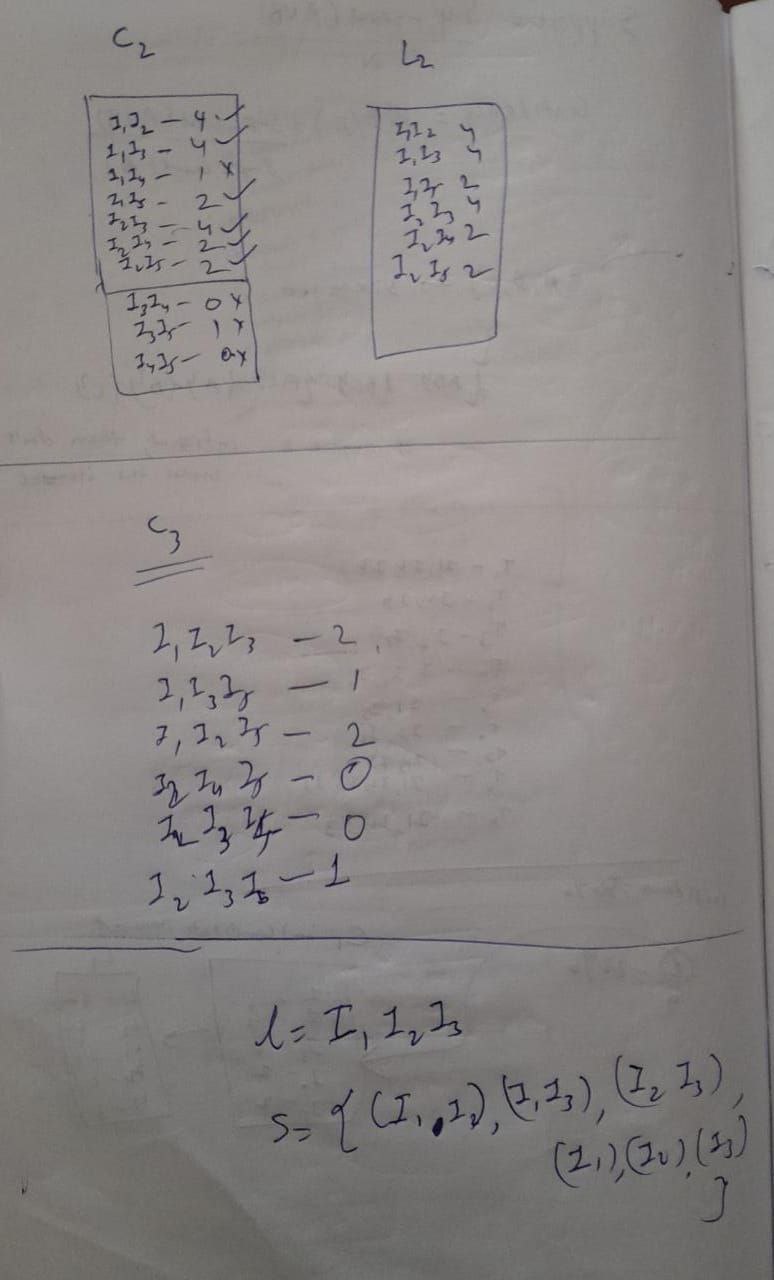 C2
I1I2 - 4 ✓
I1I3 - 4 ✓
I1I4 - 1 x
I1I5 - 2 ✓
I2I3 - 4 ✓
I2I4 - 2 ✓
I2I5 - 2 ✓
I3I4 - 0 x
I3I5 - 1 x
I4I5 - 0 x
L2
I1I2 4
I1I3 4
I1I5 2
I2I3 4
I2I4 2
I2I5 2
C3
I1I2I3 - 2
I1I3I5 - 1
I1I2I5 - 2
I2I4I5 - 0
I2I3I4 - 0
I2I3I5 - 1
l = I1I2I3
S = { (I1, I2), (I1I3), (I2 I3),
(I1), (I2), (I3)
}